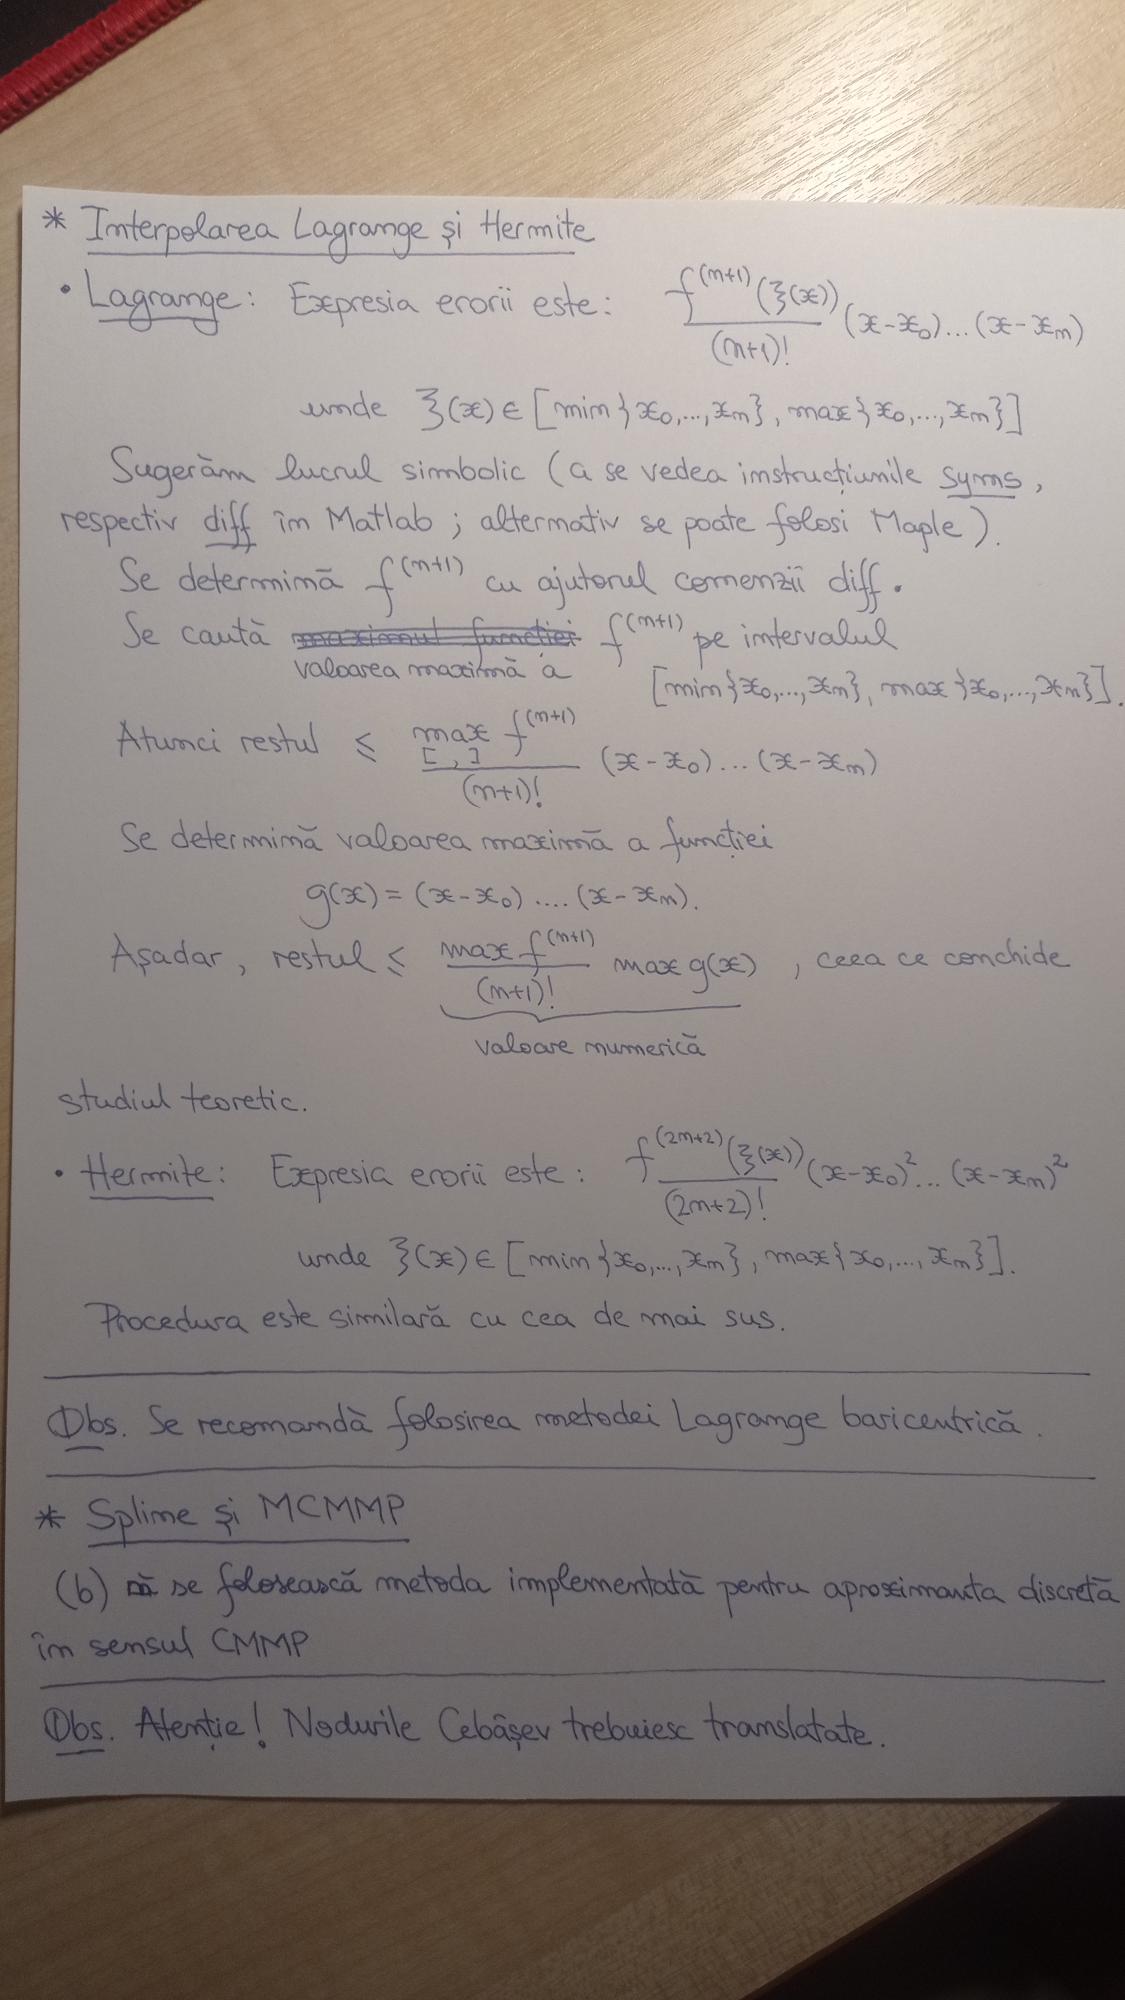 * Interpolarea Lagrange și Hermite
• Lagrange: Expresia erorii este: f^(n+1)(ξ(x))/(n+1)! (x-x₀)...(x-xₙ)
unde ξ(x) ∈ [min{x₀,...,xₙ}, max{x₀,...,xₙ}]
Sugerăm lucrul simbolic (a se vedea instrucțiunile syms,
respectiv diff în Matlab; alternativ se poate folosi Maple).
Se determină f^(n+1) cu ajutorul comenzii diff.
Se caută maximul funcției f^(n+1) pe intervalul
valoarea maximă a
[min{x₀,...,xₙ}, max{x₀,...,xₙ}].
Atunci restul ≤ max_[ , ] f^(n+1)/(n+1)! (x-x₀)...(x-xₙ)
Se determină valoarea maximă a funcției
g(x) = (x-x₀)....(x-xₙ).
Așadar, restul ≤ max f^(n+1)/(n+1)! max g(x), ceea ce conchide
valoare numerică
studiul teoretic.
• Hermite: Expresia erorii este: f^(2n+2)(ξ(x))/(2n+2)! (x-x₀)²...(x-xₙ)²
unde ξ(x) ∈ [min{x₀,...,xₙ}, max{x₀,...,xₙ}].
Procedura este similară cu cea de mai sus.
Obs. Se recomandă folosirea metodei Lagrange baricentrică.
* Spline și MCMMP
(b) să se folosească metoda implementată pentru aproximanta discretă
în sensul CMMP
Obs. Atenție! Nodurile Cebâșev trebuiesc translatate.